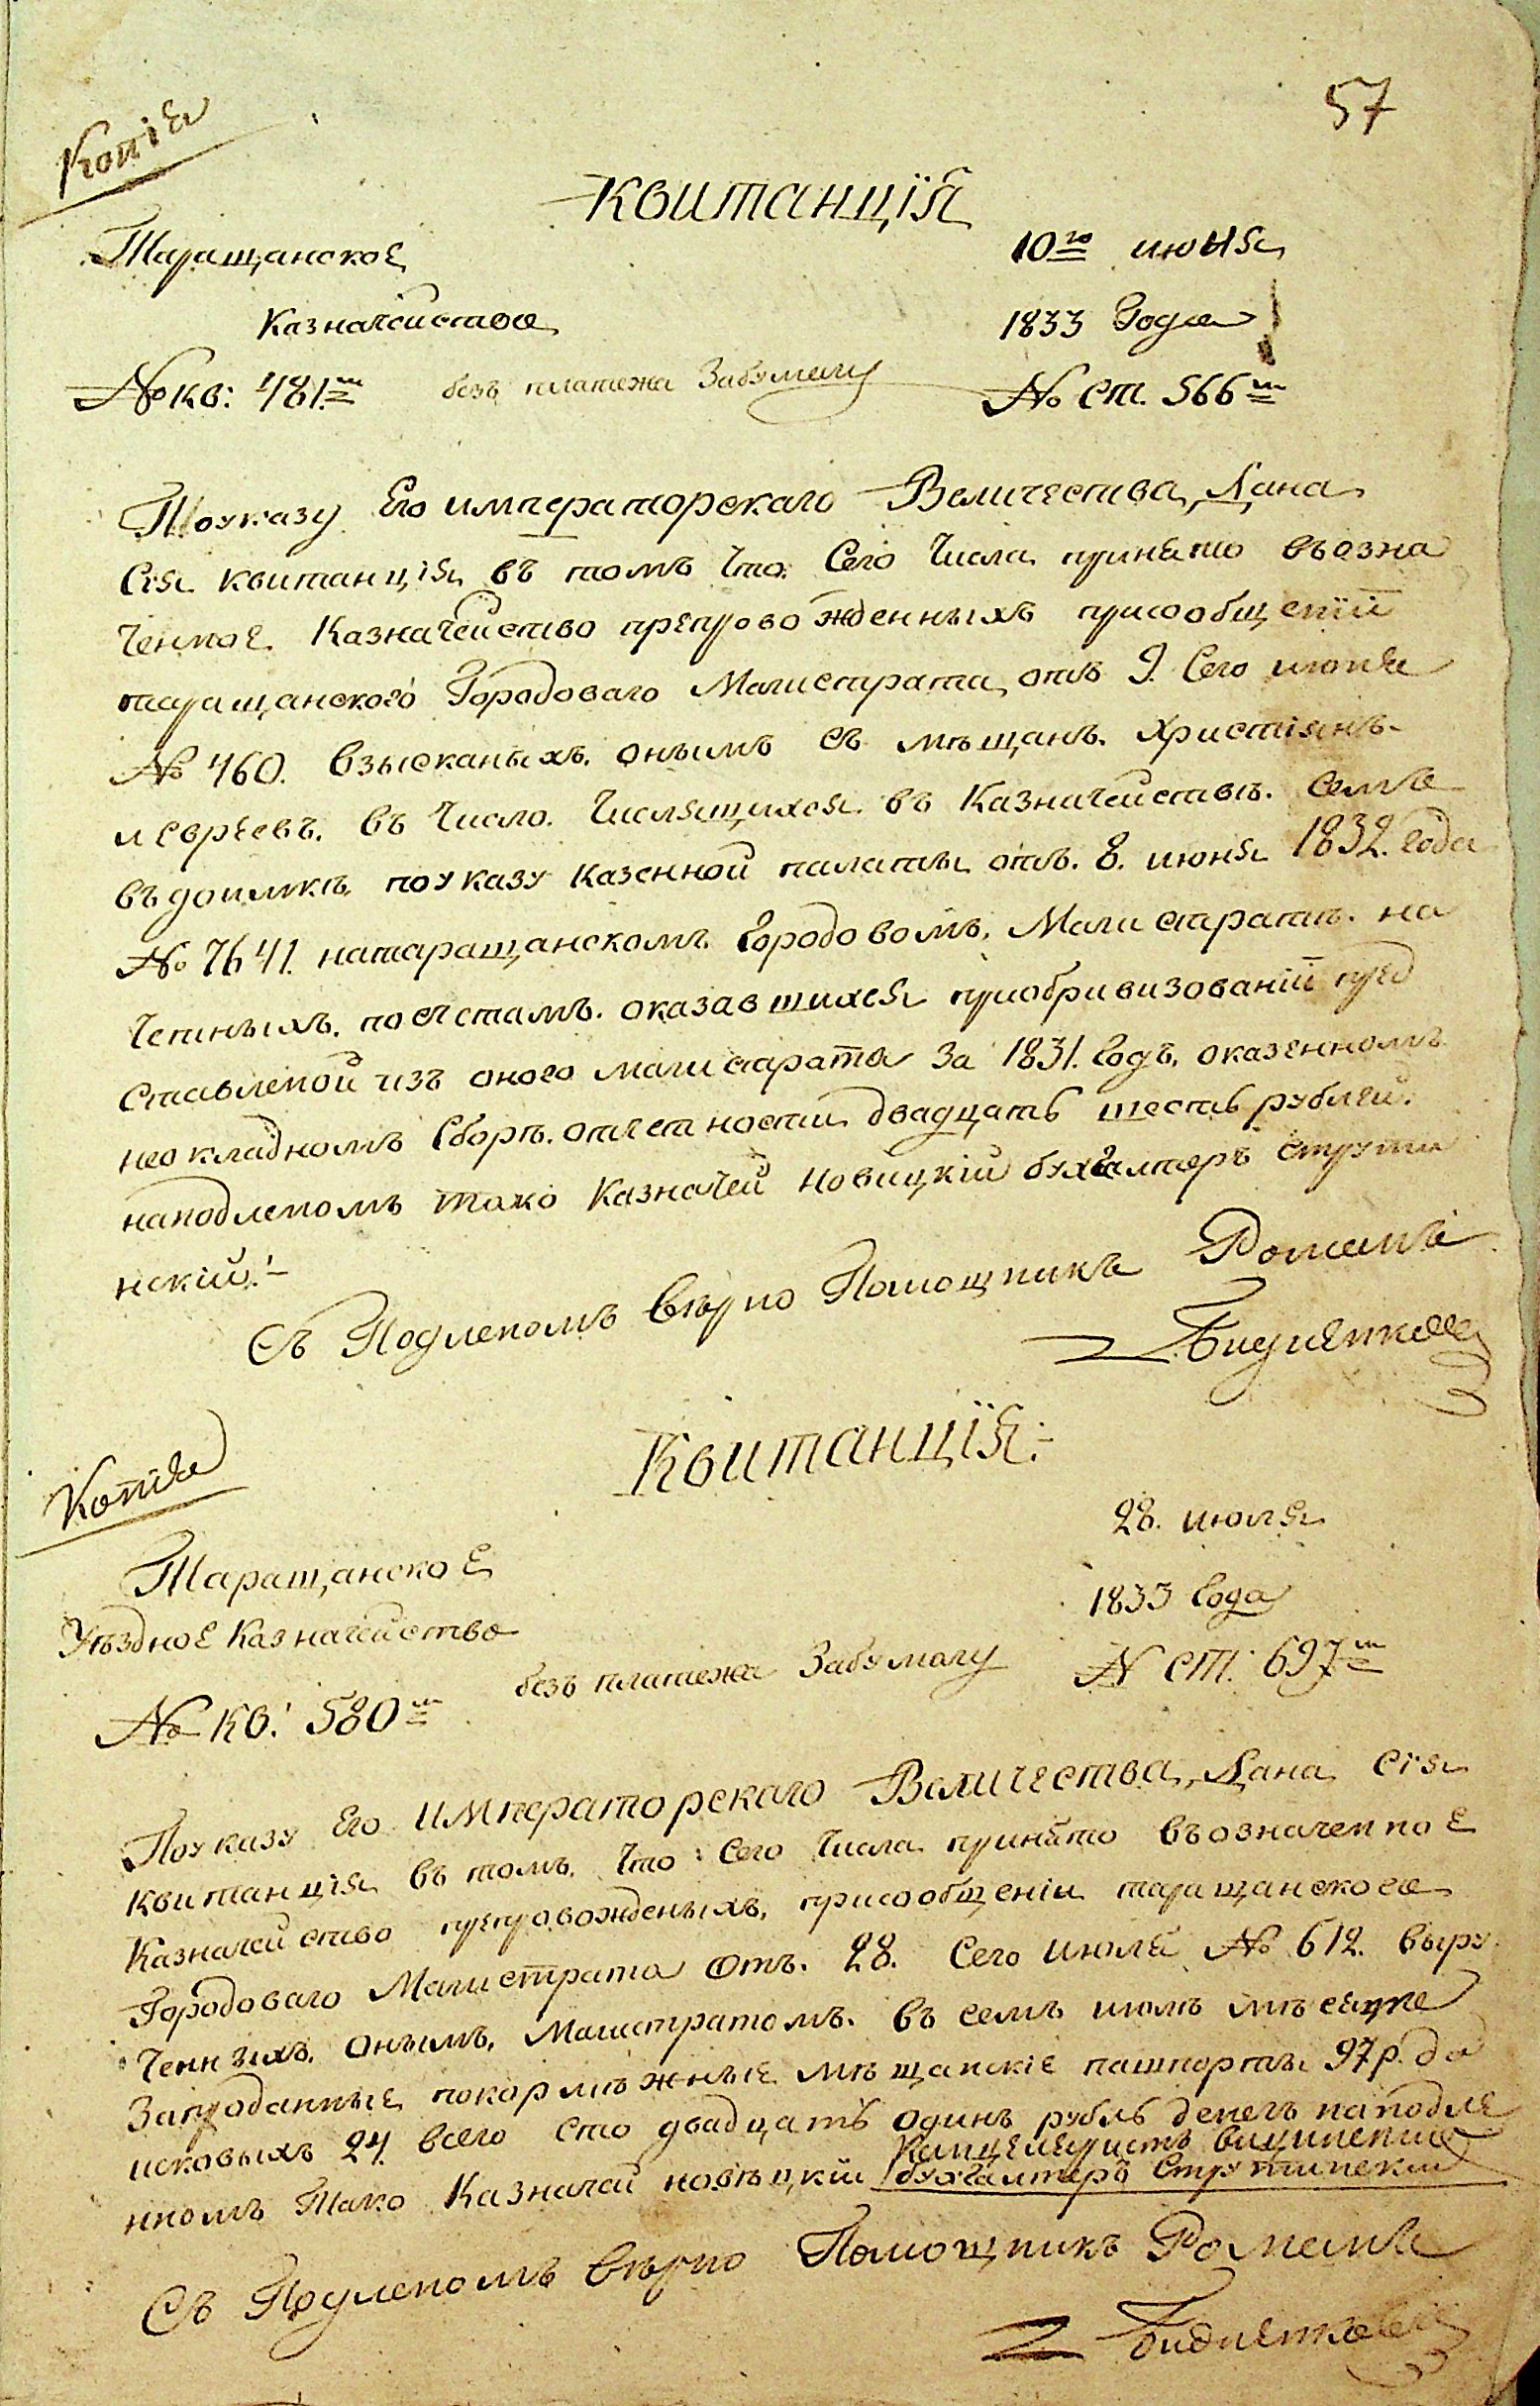 57
Копія
Квитанцiя
Таращанское 10го июня
Казначейство 1833 Года
№ кв: 481м безъ платежа Забумагу № ст. 566м
Поуказу Его императорскаго Величества, Дана
Сiя квитанцiя въ томъ Что: Сего Числа принято въозна
ченное Казначейство препровожденныхъ присообщенiи
таращанского Городоваго Магистрата, отъ 9. Сего июня
№ 460. Взысканыхъ. онымъ съ мѣщанъ. Христiянъ-
и евреевъ. въ Число. Числящихся въ Казначействѣ. семъ
въдоимкѣ, поуказу казенной палаты отъ. 8. июня 1832. года
№ 7641. натаращанскомъ Городовомъ, Магистратѣ. на
Чтенныхъ. посчетамъ. оказавшихся приобривизованiи пред
ставленой изъ оного магистрата За 1831. Годъ. оказенномъ
неокладномъ Сборѣ. отчетности двадцать шесть рублей.
наподленомъ тако Казначей Новицкiй бухгалтеръ Струти
нскiй:-
Съ Подленомъ Вѣрно Помощникъ Романъ
Копiя
Квитанцiя:-
28. июля
Таращанское
1833 Года
Уѣздное Казначейство
безъ платежа Забумагу № ст: 697м
№ кв: 580м
Поуказу Его Императорскаго Величества, Дана сiя
квитанцiя въ томъ, Что: Сего Числа принято въозначенное
Казначейство препровожденыхъ, присообщенiи таращанского
Городоваго Магистрата Отъ. 28. Сего Июля № 612. выру
ченныхъ. Онымъ, Магистратомъ. въ семъ июлѣ мѣсяце
Запроданные покормѣжные мѣщанскiе пашпорты 97 р. до
исковыхъ 24. всего сто двадцать одинъ рубль денегъ наподле
Канцеляристъ
нномъ Тако Казначей новѣцкiй бухгалтеръ Струтинскiй
Съ Подленомъ Вѣрно Помощникъ Романъ